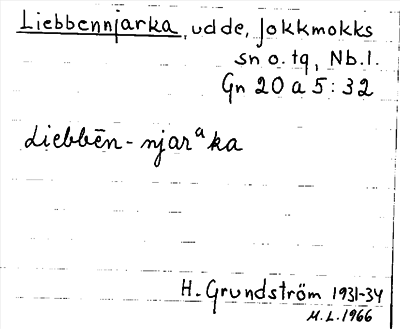 Liebbennjarka, udde, Jokkmokks
sn o. tg, Nb.l.
Gn 20 a 5:32
Liebbēn-njarᵃka
H. Grundström 1931-34
M.L. 1966